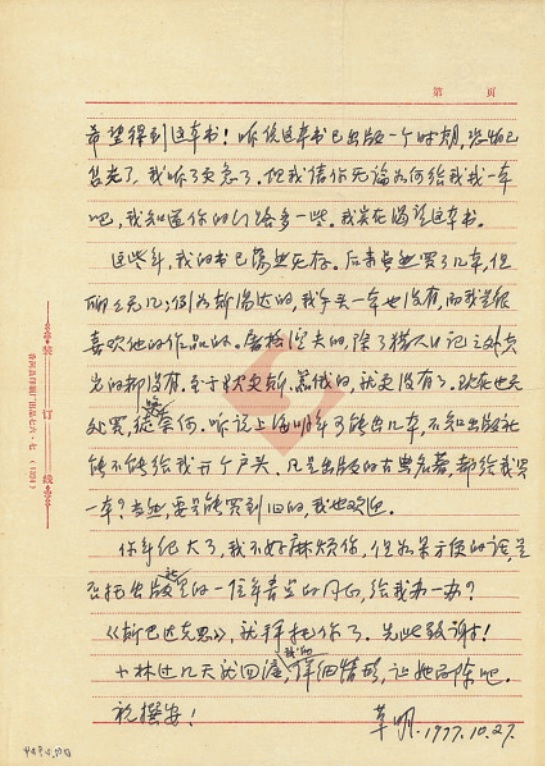 第 页
希望得到这本书！听说这本书已出版一个时期，恐怕已
售光了，我听了更急了。但我请你无论如何给我找一本
吧，我知道你的门路多一些。我实在渴望这本书。
这些年，我的书已荡然无存。后来虽然买了几本，但
聊聊无几；例如斯汤达的，我手头一本也没有，而我是很
喜欢他的作品的。屠格涅夫的，除了猎人日记之外
的都没有。至于狄更斯、萧伯的，就更没有了。现在也无
处买，徒奈何。听说上海明年可能出几本，不知出版社
能不能给我开个户头，凡是出版的古典名著，都给我买
一本？当然，要是能买到旧的，我也欢迎。
你年纪大了，我不好麻烦你，但如果方便的话，是
否托出版社里的一位年青点的同志，给我办一办？
《斯巴达克思》，就拜托你了。先此致谢！
小林过几天就回沪，我们详细情形，让她面陈吧。
祝撰安！
草明.1977.10.27.
装 订 线